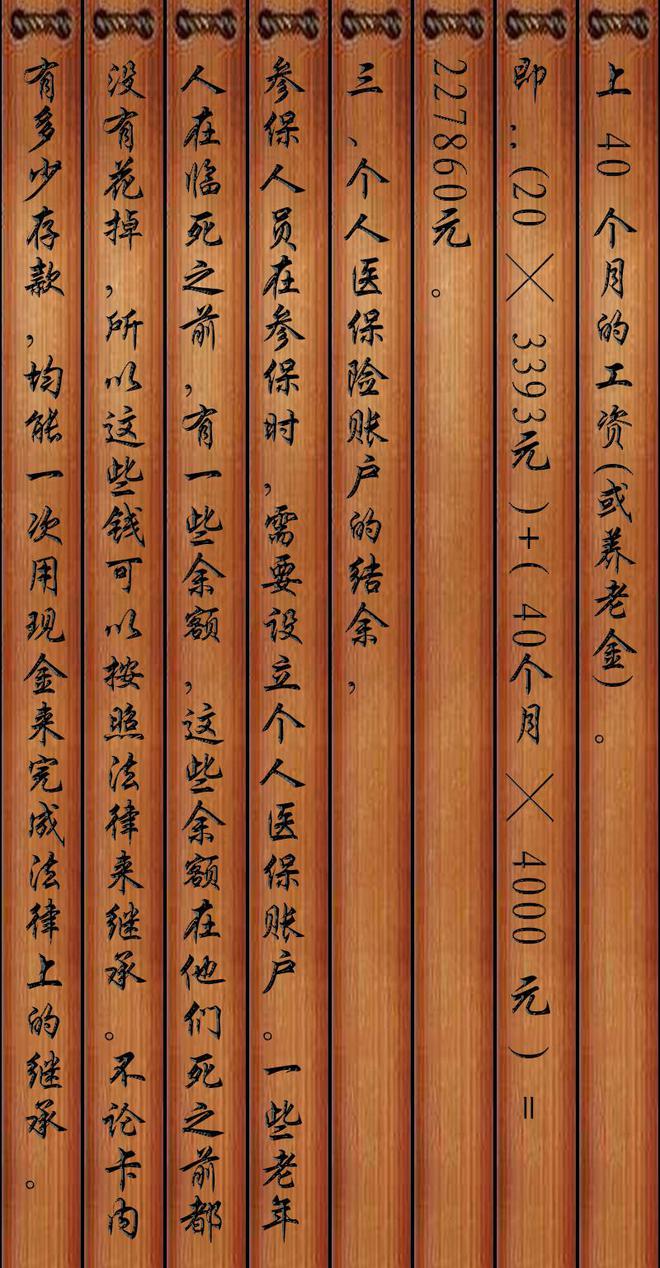 上40个月的工资(或养老金)。
即:(20×3393元)+(40个月×4000元)=
227860元。
三、个人医保险账户的结余,
参保人员在参保时,需要设立个人医保账户。一些老年
人在临死之前,有一些余额,这些余额在他们死之前都
没有花掉,所以这些钱可以按照法律来继承。不论卡内
有多少存款,均能一次用现金来完成法律上的继承。